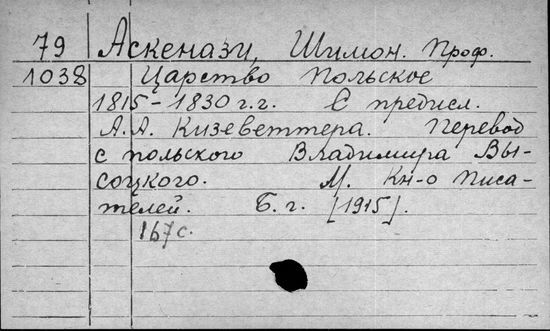 79 Аскенази, Шимон. Проф.
1038 Царство Польское
1815-1830 г.г. С предисл.
А.А. Кизеветтера. Перевод
с польского Владимира Вы-
соцкого. М. Кн-о писа-
телей. Б. г. [1915].
167 с.